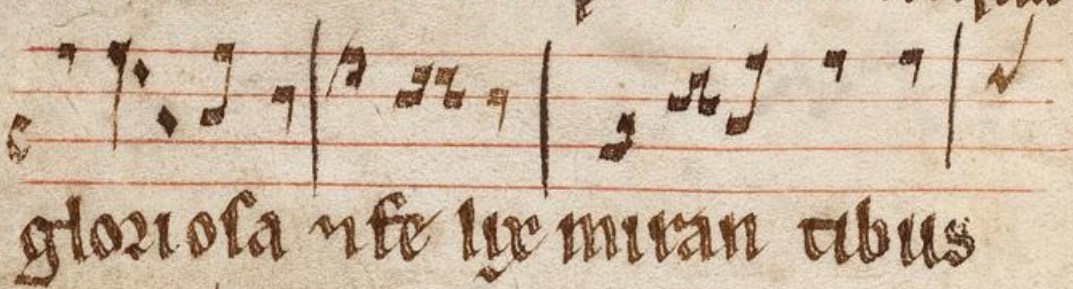 gloriosa infe lix miran tibus